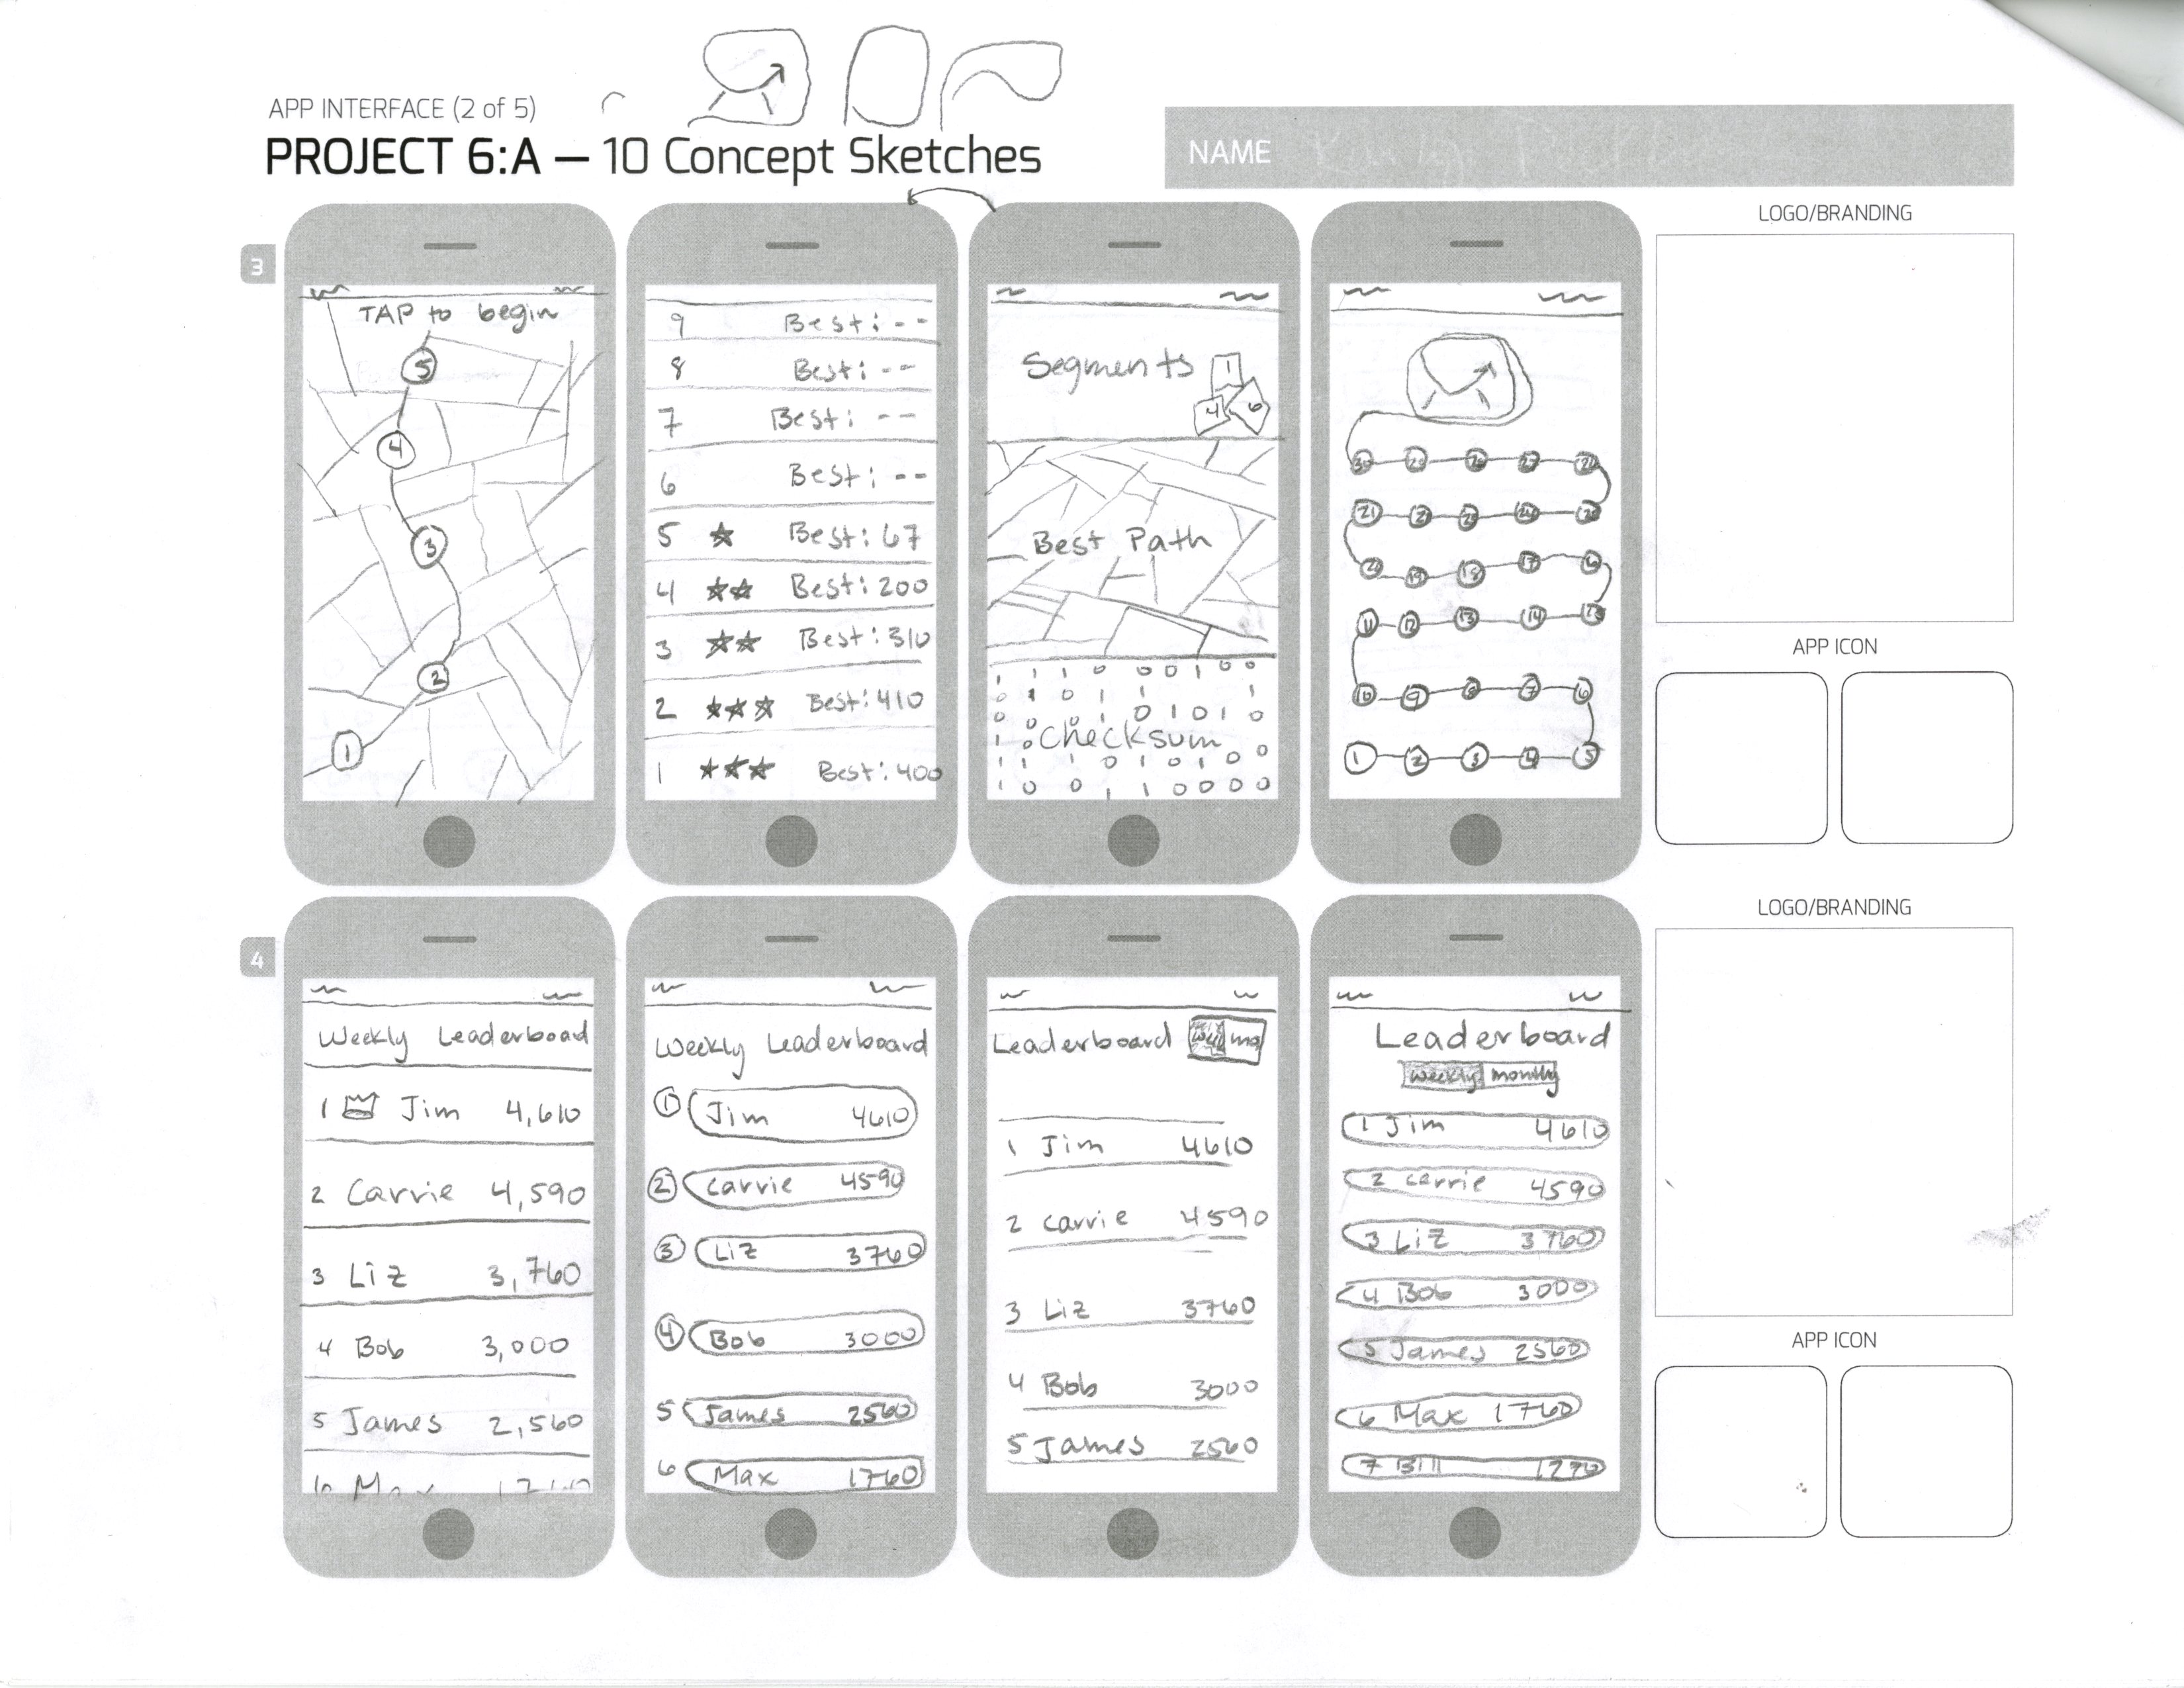 APP INTERFACE (2 of 5)
PROJECT 6:A — 10 Concept Sketches
NAME
3
TAP to begin
5
4
3
2
1
9 Best: --
8 Best: --
7 Best: --
6 Best: --
5 ★ Best: 67
4 ★★ Best: 200
3 ★★ Best: 310
2 ★★★ Best: 410
1 ★★★ Best: 400
Segments
1
4 6
Best Path
Checksum
21
11 12 13 14
10 9 8 7 6
1 2 3 4 5
LOGO/BRANDING
APP ICON
4
Weekly Leaderboard
1 Jim 4,610
2 Carrie 4,590
3 Liz 3,760
4 Bob 3,000
5 James 2,560
6 Max
Weekly Leaderboard
1 Jim 4610
2 Carrie 4590
3 Liz 3760
4 Bob 3000
5 James 2560
6 Max 1760
Leaderboard
1 Jim 4610
2 Carrie 4590
3 Liz 3760
4 Bob 3000
5 James 2560
Leaderboard
weekly monthly
1 Jim 4610
2 Carrie 4590
3 Liz 3760
4 Bob 3000
5 James 2560
6 Max 1760
7 Bill
LOGO/BRANDING
APP ICON